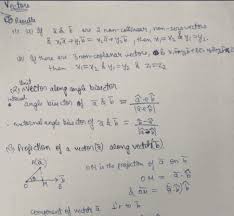 Vectors
Results
(1) (a) If a̅ & b̅ are 2 non-collinear, non-zero vectors
& x₁a̅ + y₁b̅ = x₂a̅ + y₂b̅, then x₁=x₂ & y₁=y₂.
(b) If there are 3 non-coplanar vectors,
then x₁=x₂ & y₁=y₂ & z₁=z₂
(2) unit vector along angle bisector
internal angle bisector of a̅ & b̅ =
external angle bisector of a̅ & b̅ =
(3) Projection of a vector (a̅) along vector (b̅)
A(a̅)
OM is the projection of a̅ on b̅
OM = a̅·b̂
O M
& O̅M̅ = (a̅·b̂) b̂
component of vector a̅ ⊥r to b̅